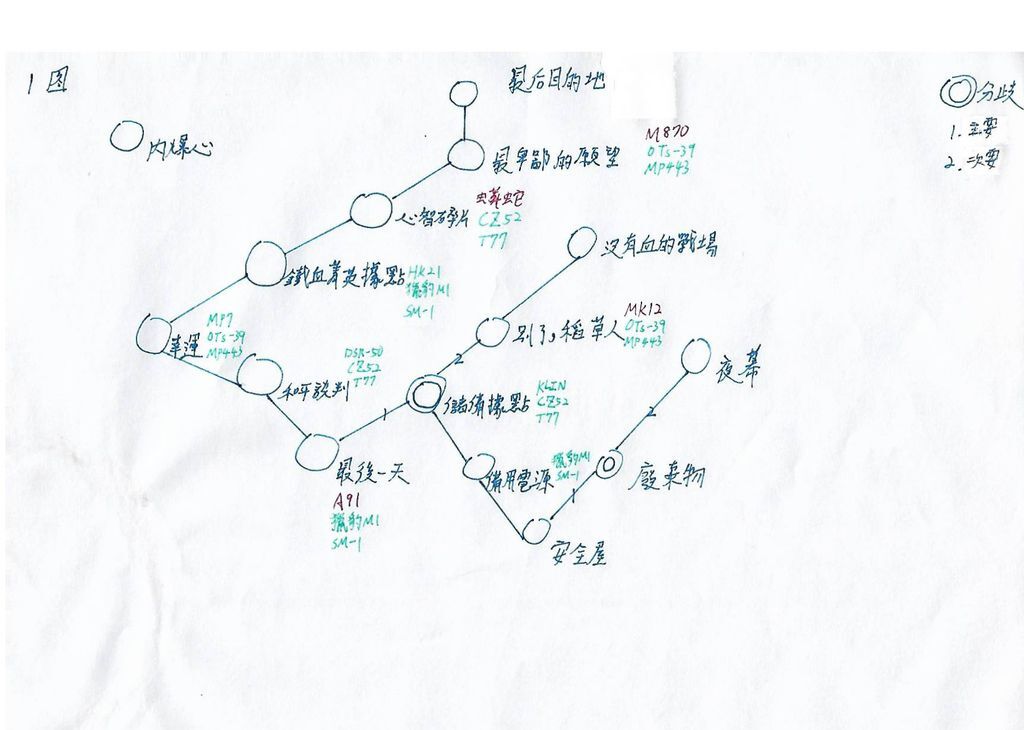 1图
最后目的地
分歧
1. 主要
2. 次要
内爆心
最卑鄙的願望
M870
OTs-39
MP443
心智碎片
CZ52
T77
鐵血菁英據點
HK21
獵豹M1
SM-1
沒有血的戰場
幸運
MP7
OTs-39
MP443
和平談判
DSR-50
CZ52
T77
別了,稻草人
MK12
OTs-39
MP443
2
1
儲備據點
KLIN
CZ52
T77
夜幕
2
最後一天
A91
獵豹M1
SM-1
備用電源
獵豹M1
SM-1
1
廢棄物
安全屋